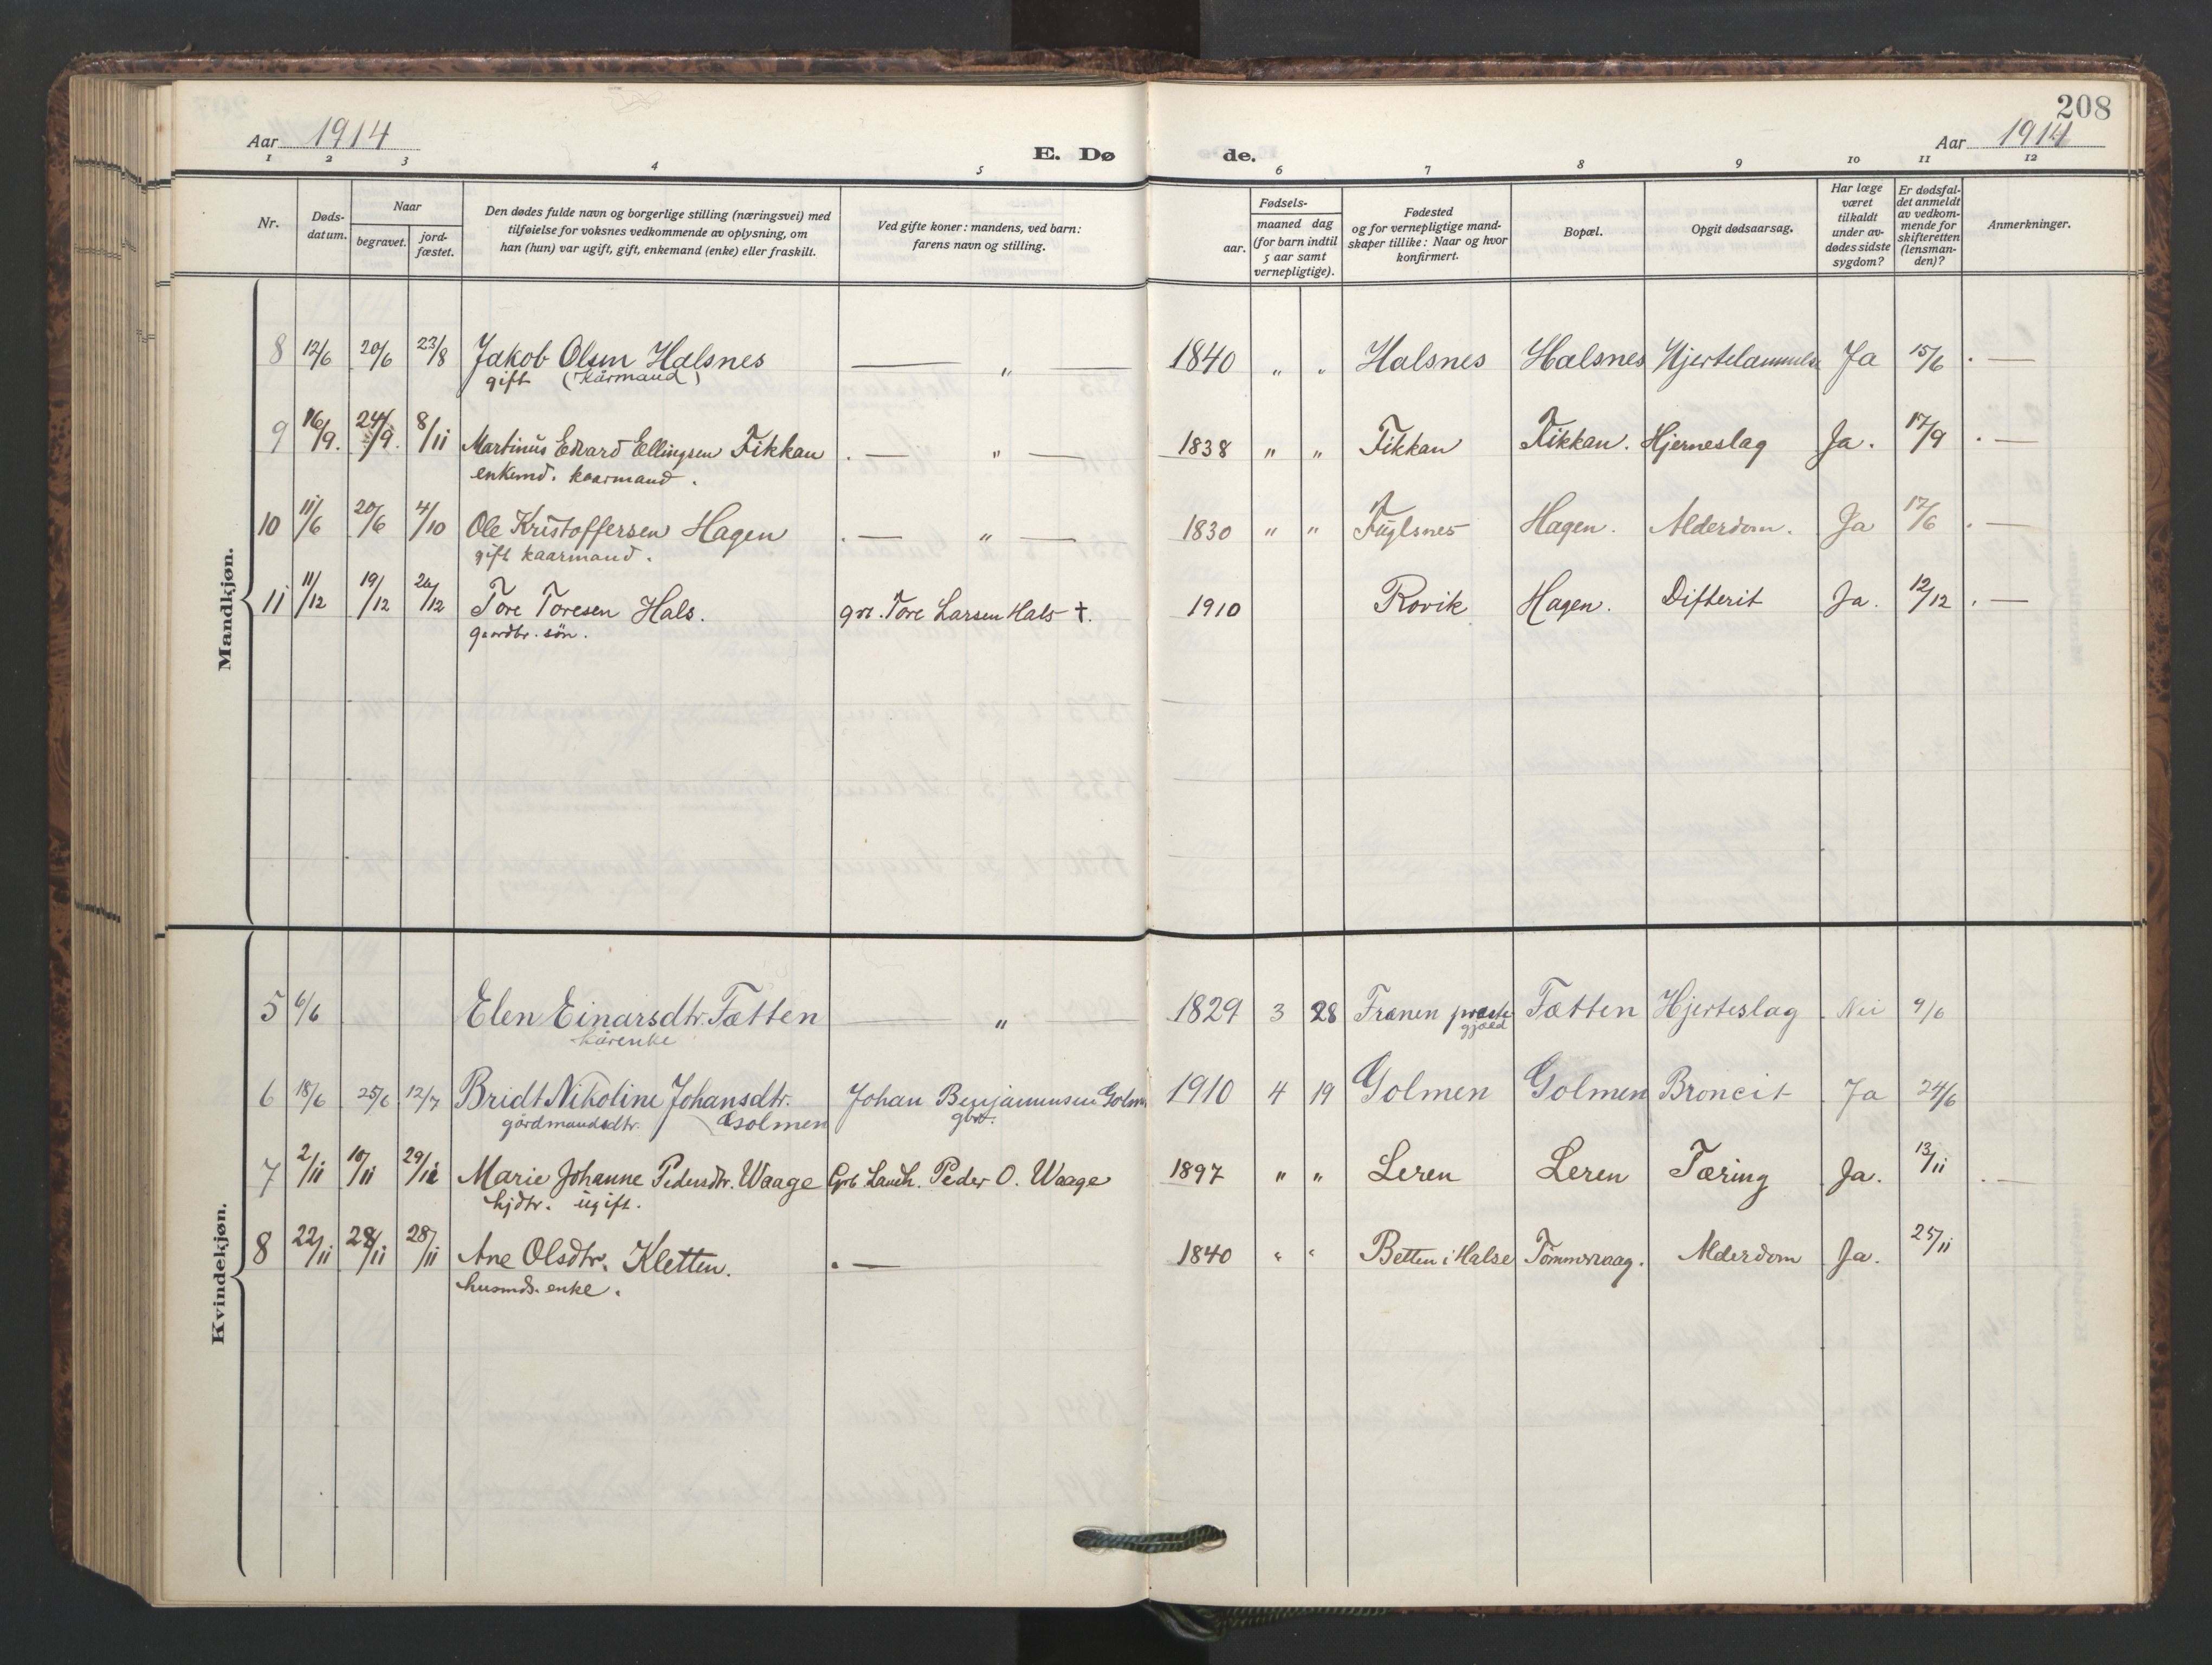 208
Aar 1914
E. Dø
de.
Aar 1914
1 2 3 4 5 6 7 8 9 10 11 12
Nr.
Døds-
datum.
Naar
begravet.
jord-
fæstet.
Den dødes fulde navn og borgerlige stilling (næringsvei) med
tilføielse for voksnes vedkommende av oplysning, om
han (hun) var ugift, gift, enkemand (enke) eller fraskilt.
Ved gifte koner: mandens, ved barn:
farens navn og stilling.
Fødsels-
aar.
maaned dag
(for barn indtil
5 aar samt
vernepligtige).
Fødested
og for vernepligtige mand-
skaper tillike: Naar og hvor
konfirmert.
Bopæl.
Opgit dødsaarsag.
Har læge
været
tilkaldt
under av-
dødes sidste
sygdom?
Er dødsfal-
det anmeldt
av vedkom-
mende for
skifteretten
(lensman-
den)?
Anmerkninger.
Mandkjøn.
8 12/6 20/6 23/8 Jakob Olsen Halsnes — " — 1840 " " Halsnes Halsnes Hjertelammelse Ja 15/6 . —
gift (Kårmand)
9 16/9. 24/9. 8/11 Martinus Edvard Ellingsen Fikkan . — " — 1838 " " Fikkan Fikkan. Hjerneslag Ja. 17/9 . —
enkemd. kaarmand.
10 11/6 20/6 4/10 Ole Kristoffersen Hagen . — " — 1830 " " Fuglsnes Hagen. Alderdom. Ja 12/6 . —
gift kaarmand.
11 11/12 19/12 26/12 Tore Toresen Hals. gbr. Tore Larsen Hals †. 1910 Rovik Hagen. Difterit Ja. 12/12 . —
gaardbr. søn.
Kvindekjøn.
5 6/6 Elen Einarsdtr. Tætten — " — 1829 3 28 Frænen præste Tætten Hjerteslag Nei 9/6
kårenke gjæld
6 18/6 25/6 12/7 Bridt Nikoline Johansdtr. Johan Benjaminsen Golmen 1910 4 19 Golmen Golmen Broncit Ja 24/6
gårdmandsdtr. Golmen gbr.
7 2/11 10/11 29/12 Marie Johanne Pedersdtr. Waage Grb. Landh. Peder O. Waage 1897 " " Leren Leren Tæring Ja. 13/11 . —
hjdtr. ugift.
8 22/11 28/11 28/11 Ane Olsdtr. Kletten. . — 1840 " " Betten i Halse Tømmervaag. Alderdom Ja. 25/11
husmds. enke.